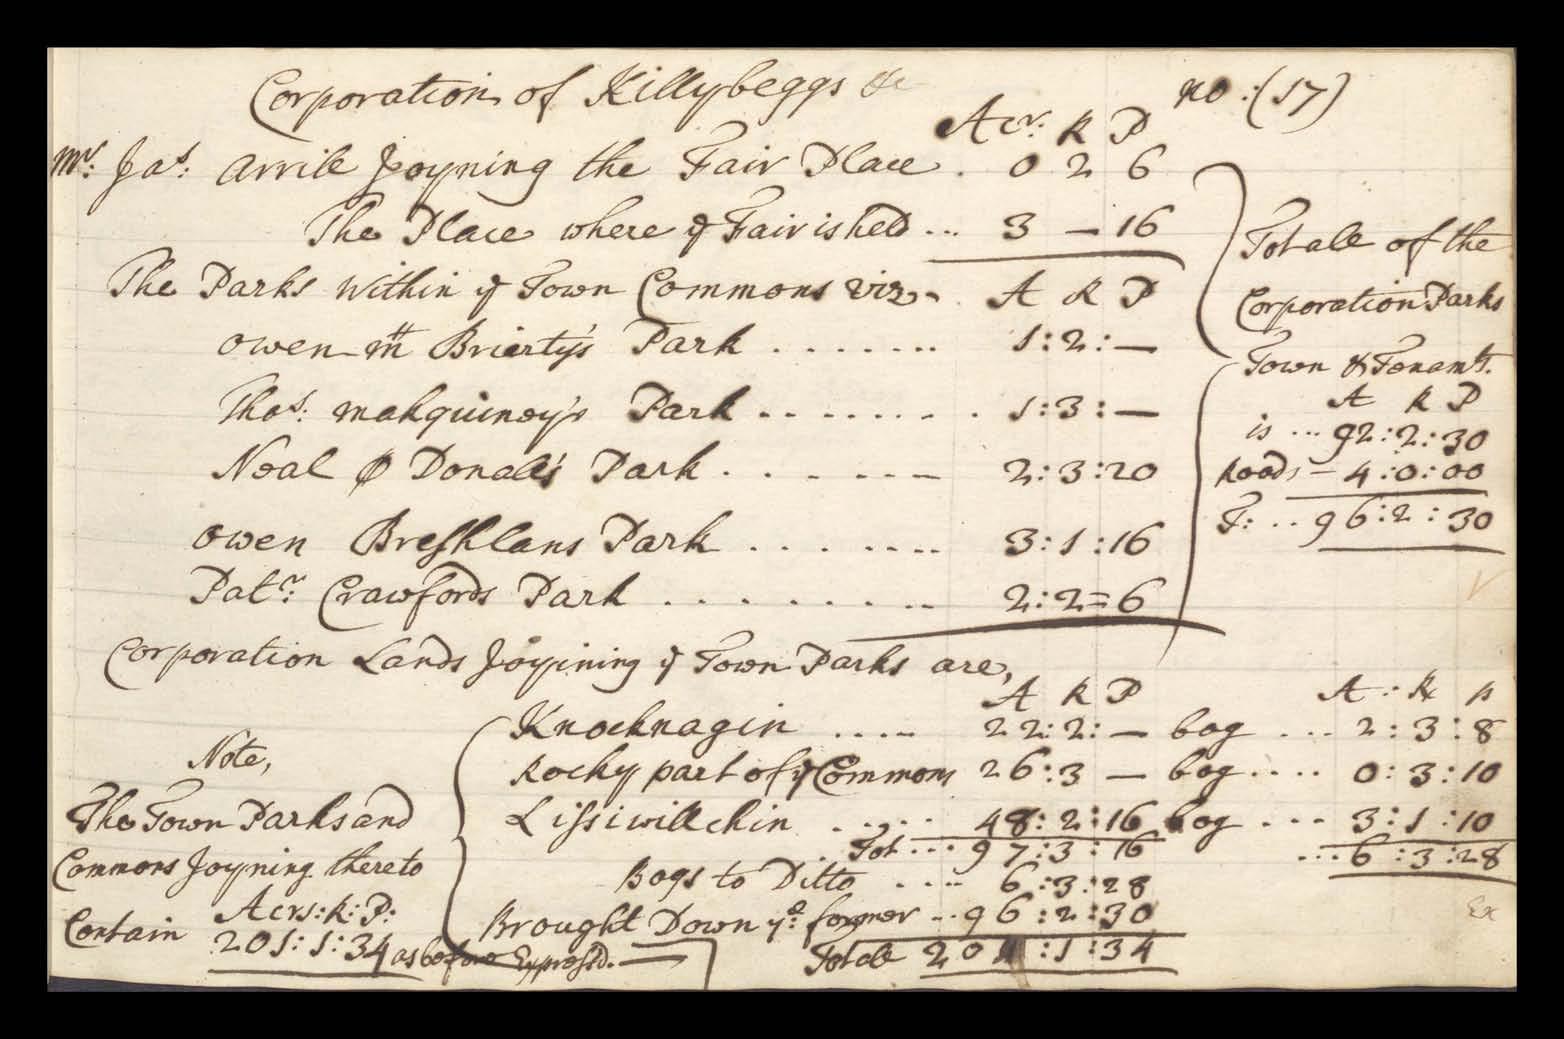 Corporation of Killybeggs &c
no: (17)
Acr: R P
Mr: Jas: Arrile Joyning the Fair Place . 0 2 6
The Place where ye Fair is held ... 3 — 16
The Parks within ye Town Commons viz. A R P
Owen Mtt Brierty's Park ....... 1:2:—
Thos: Mahquiney's Park ........ 1:3:—
Neal O Donall's Park ...... 2:3:20
Owen Breshlans Park ....... 3:1:16
Patr: Crawfords Park ......... 2:2=6
Totale of the
Corporation Parks
Town & Tenamts.
A R P
is ... 92:2:30
Roads — 4:0:00
T: .. 96:2:30
Corporation Lands Joyining ye Town Parks are,
A R P A : R p
Knocknagin ..... 22:2:— bog .... 2:3:8
Rocky part of ye Commons 26:3 — bog .... 0:3:10
Lissiwillchin ..... 48:2:16 bog .... 3:1:10
Tot ... 97:3:16 ... 6:3:28
Bogs to Ditto .... 6:3:28
Brought Down ye former .. 96:2:30
Totale 201:1:34
Note,
The Town Parks and
Commons Joyning thereto
Acrs: R: P:
Contain 201:1:34 as before Expressd.
Ex